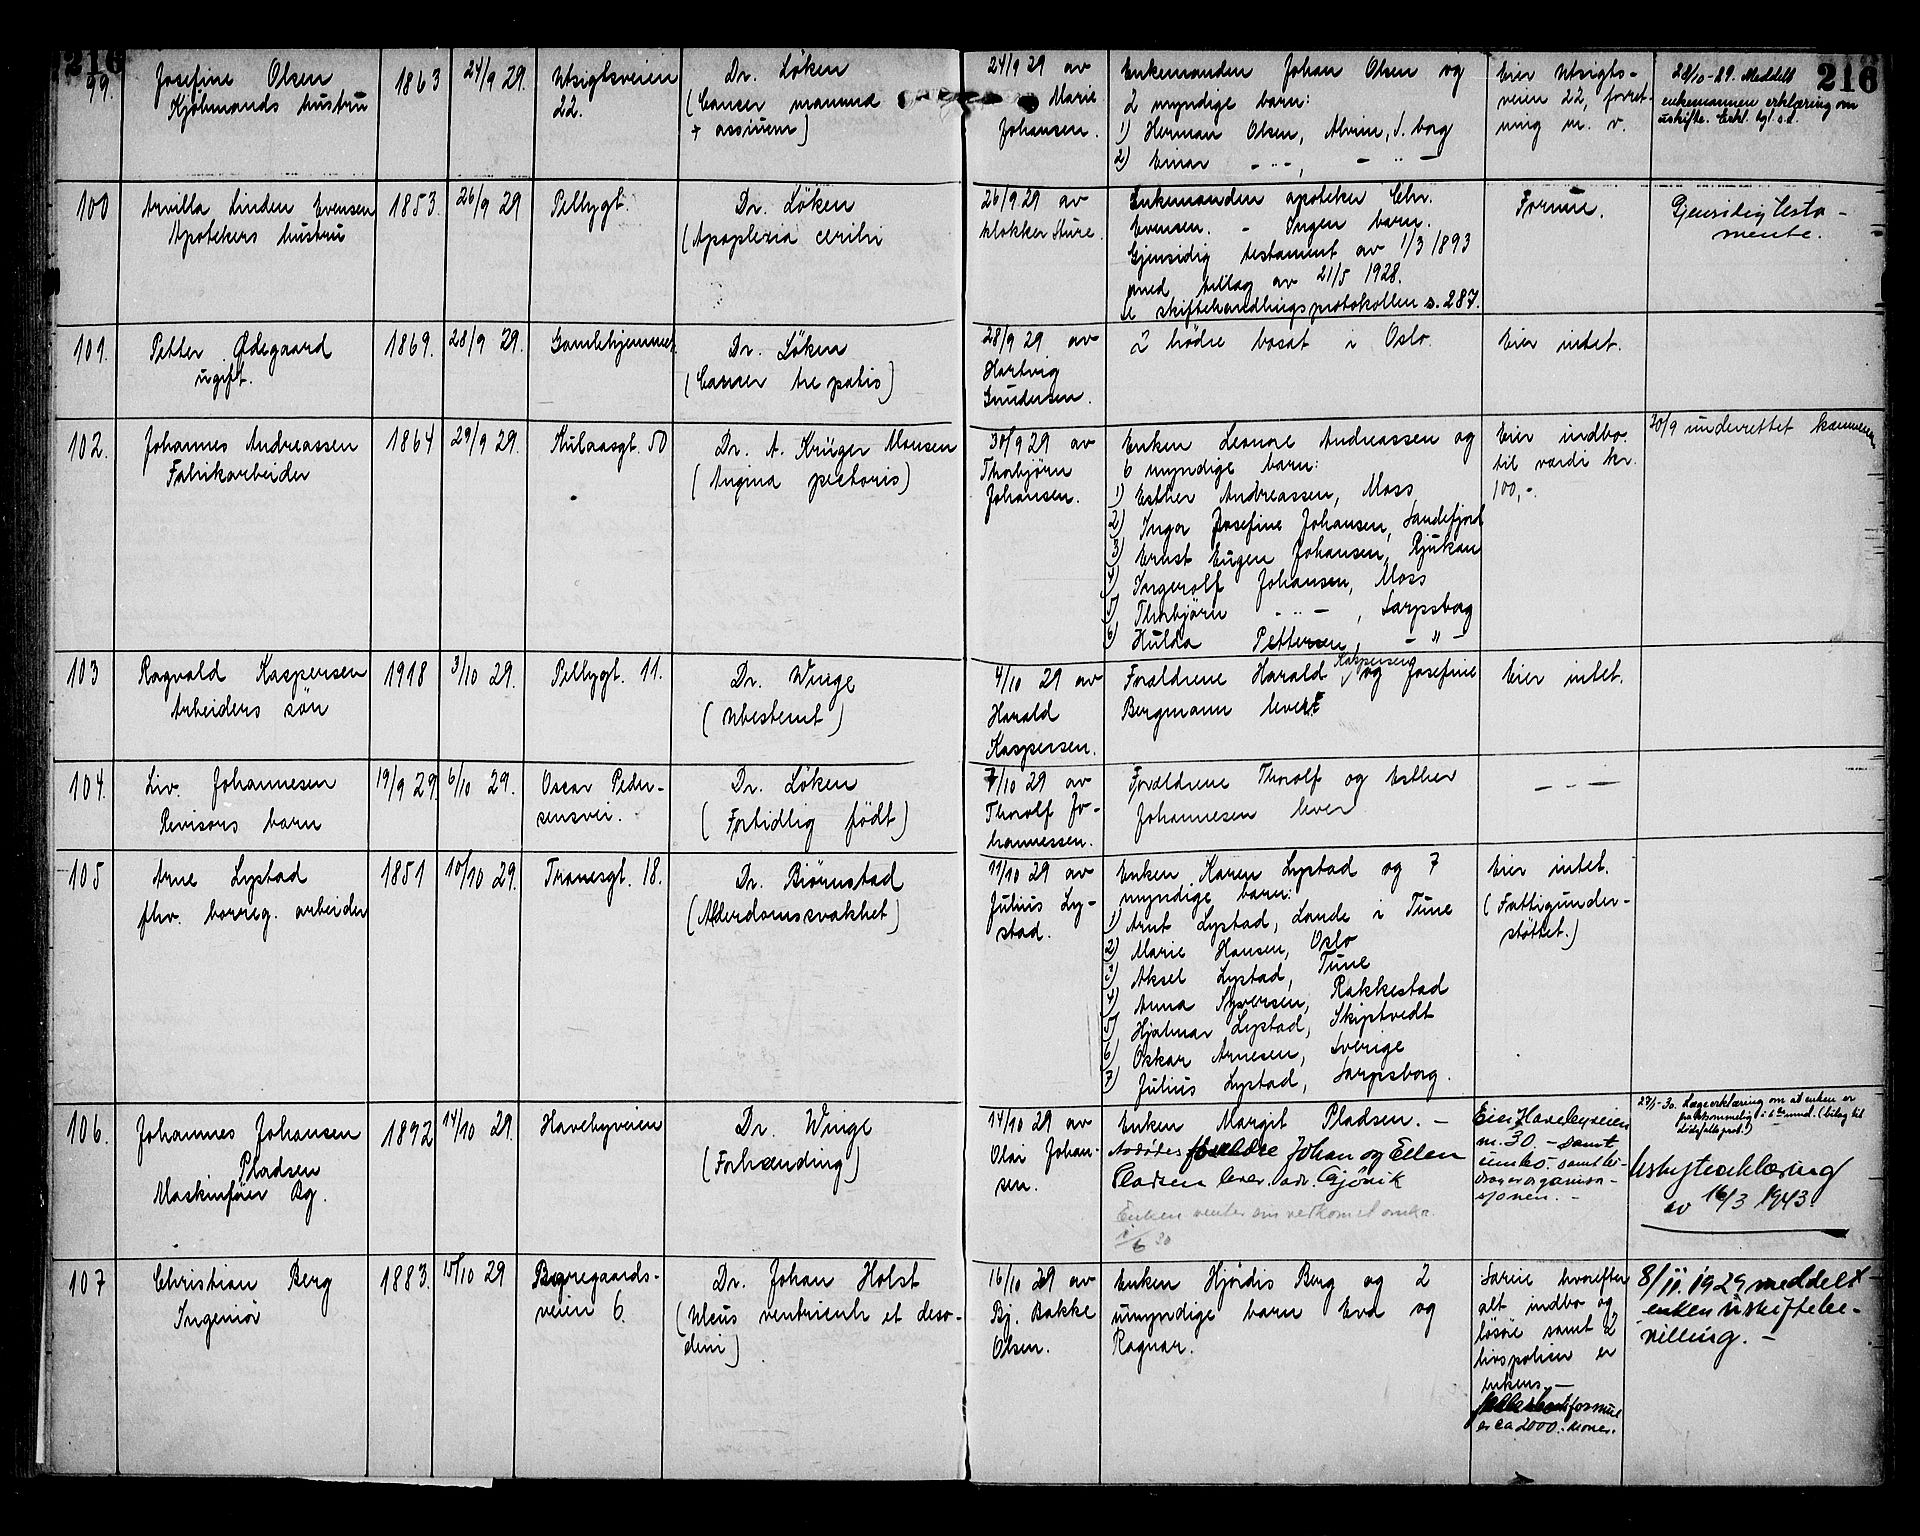 216
216
99.
Josefine Olsen
Kjöbmands hustru
1863
24/9 29.
Utsigtsveien
22.
Dr. Löken
(Cancer mamma
24/9 29 av
Marie
Johansen.
Enkemanden Johan Olsen og
2 myndige barn:
1) Herman Olsen, Alvim, S.borg
2) Einar - " -, - " -
Eier Utsigts-
veien 22, forret-
ning m. v.
Meddelt
enkemannen erklæring om
uskifte.
100
Arvilla Linden Evensen
Apotekers hustru
1853.
26/9 29
Pellygt.
Dr. Löken
(Apoplexia ceribri
26/9 29 av
klokker Sture.
Enkemanden apoteker Chr.
Evensen. - Ingen barn.
Gjensidig testament av 1/3 1893
med tillæg av 21/5 1928.
Se skiftebehandlingsprotokollen s. 287.
Formue.
Gjensidig testa-
mente.
101.
Petter Ødegaard
ugift.
1869.
28/9 29.
Gamlehjemmet.
Dr. Löken
(Cancer hepatis)
28/9 29 av
Hartvig
Gundersen.
2 brödre bosat i Oslo.
Eier intet.
102.
Johannes Andreassen
Fabrikarbeider
1864
29/9 29.
Kulaasgt. 50
Dr. A. Krüger Monsen
(Angina pectoris)
30/9 29 av
Thorbjörn
Johansen.
Enken Leonore Andreassen og
6 myndige barn:
1) Esther Andreassen, Moss
2) Inga Josefine Johansen, Sandefjord
3) Ernst Eugen Johansen, Rjukan
4) Ingerolf Johansen, Moss
5) Thorbjörn - " -, Sarpsborg
6) Hulda Pettersen, - " -
Eier indbo
til værdi kr.
100,-.
30/9 underrettet kæmneren
103
Ragvald Kaspersen
Arbeiders sön
1918
3/10 29.
Pellygt. 11.
Dr. Winge
(Ubestemt)
4/10 29 av
Harald
Kaspersen.
Forældrene Harald Kaspersen og Josefine
Bergmann lever
Eier intet.
104.
Liv. Johannesen
Revisors barn
19/9 29
6/10 29.
Oscar Peder-
sensvei.
Dr. Löken
(Fortidlig födt)
7/10 29 av
Thorolf Jo-
hannessen.
Forældrene Thorolf og Esther
Johannesen lever
- " -
105
Arne Lystad
fhv. borreg. arbeider
1851
10/10 29.
Tranesgt. 18.
Dr. Biörnstad
(Alderdomssvakhet)
11/10 29 av
Julius Ly-
stad.
Enken Karen Lystad og 7
myndige barn:
1) Arnt Lystad, Lande i Tune
2) Marie Hansen, Oslo
3) Aksel Lystad, Tune
4) Anna Syversen, Rakkestad
5) Hjalmar Lystad, Skiptvedt
6) Oskar Arnesen, Sverige
7) Julius Lystad, Sarpsborg.
Eier intet.
(Fattigunder-
støttet.)
106.
Johannes Johansen
Pladsen
Maskinförer Bg.
1892
14/10 29.
Havebyveien
Dr. Winge
(Forhænding)
14/10 29 av
Olai Johan-
sen.
Enken Margit Pladsen. -
Avdödes forældre Johan og Ellen
Pladsen lever. adr. Gjövik
Eier Havebyveien
nr. 30. - samt
Lægeerklæring om at enken er
Uskifteerklæring
av 16/3 1943.
107
Christian Berg
Ingeniör
1883.
15/10 29
Borregaards-
veien 6.
Dr. Johan Holst
(Ulcus ventriculi et deso-
deni)
16/10 29 av
Bj. Bakke
Olsen.
Enken Hjördis Berg og 2
umyndige barn Eva og
Ragnar.
Særeie hvorefter
alt indbo og
lösöre samt 2
livspoliser er
enkens. -
formue
er ca 2000. kroner.
8/11. 1929 meddelt
enken uskiftebe-
villing. -